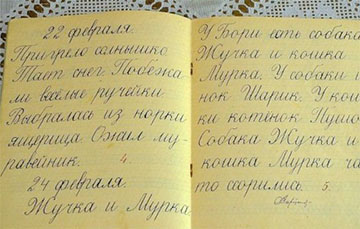 22 февраля.
Пригрело солнышко
Тает снег. Побежа
ли весёлые ручейки
Выбралась из норки
ящерица. Ожил му-
равейник. 4.
24 февраля.
Жучка и Мурка
У Бори есть собака
Жучка и кошка
Мурка. У собаки
нок Шарик. У кош
ки котёнок Пушо
Собака Жучка и
кошка Мурка ча
то ссорились. 5.